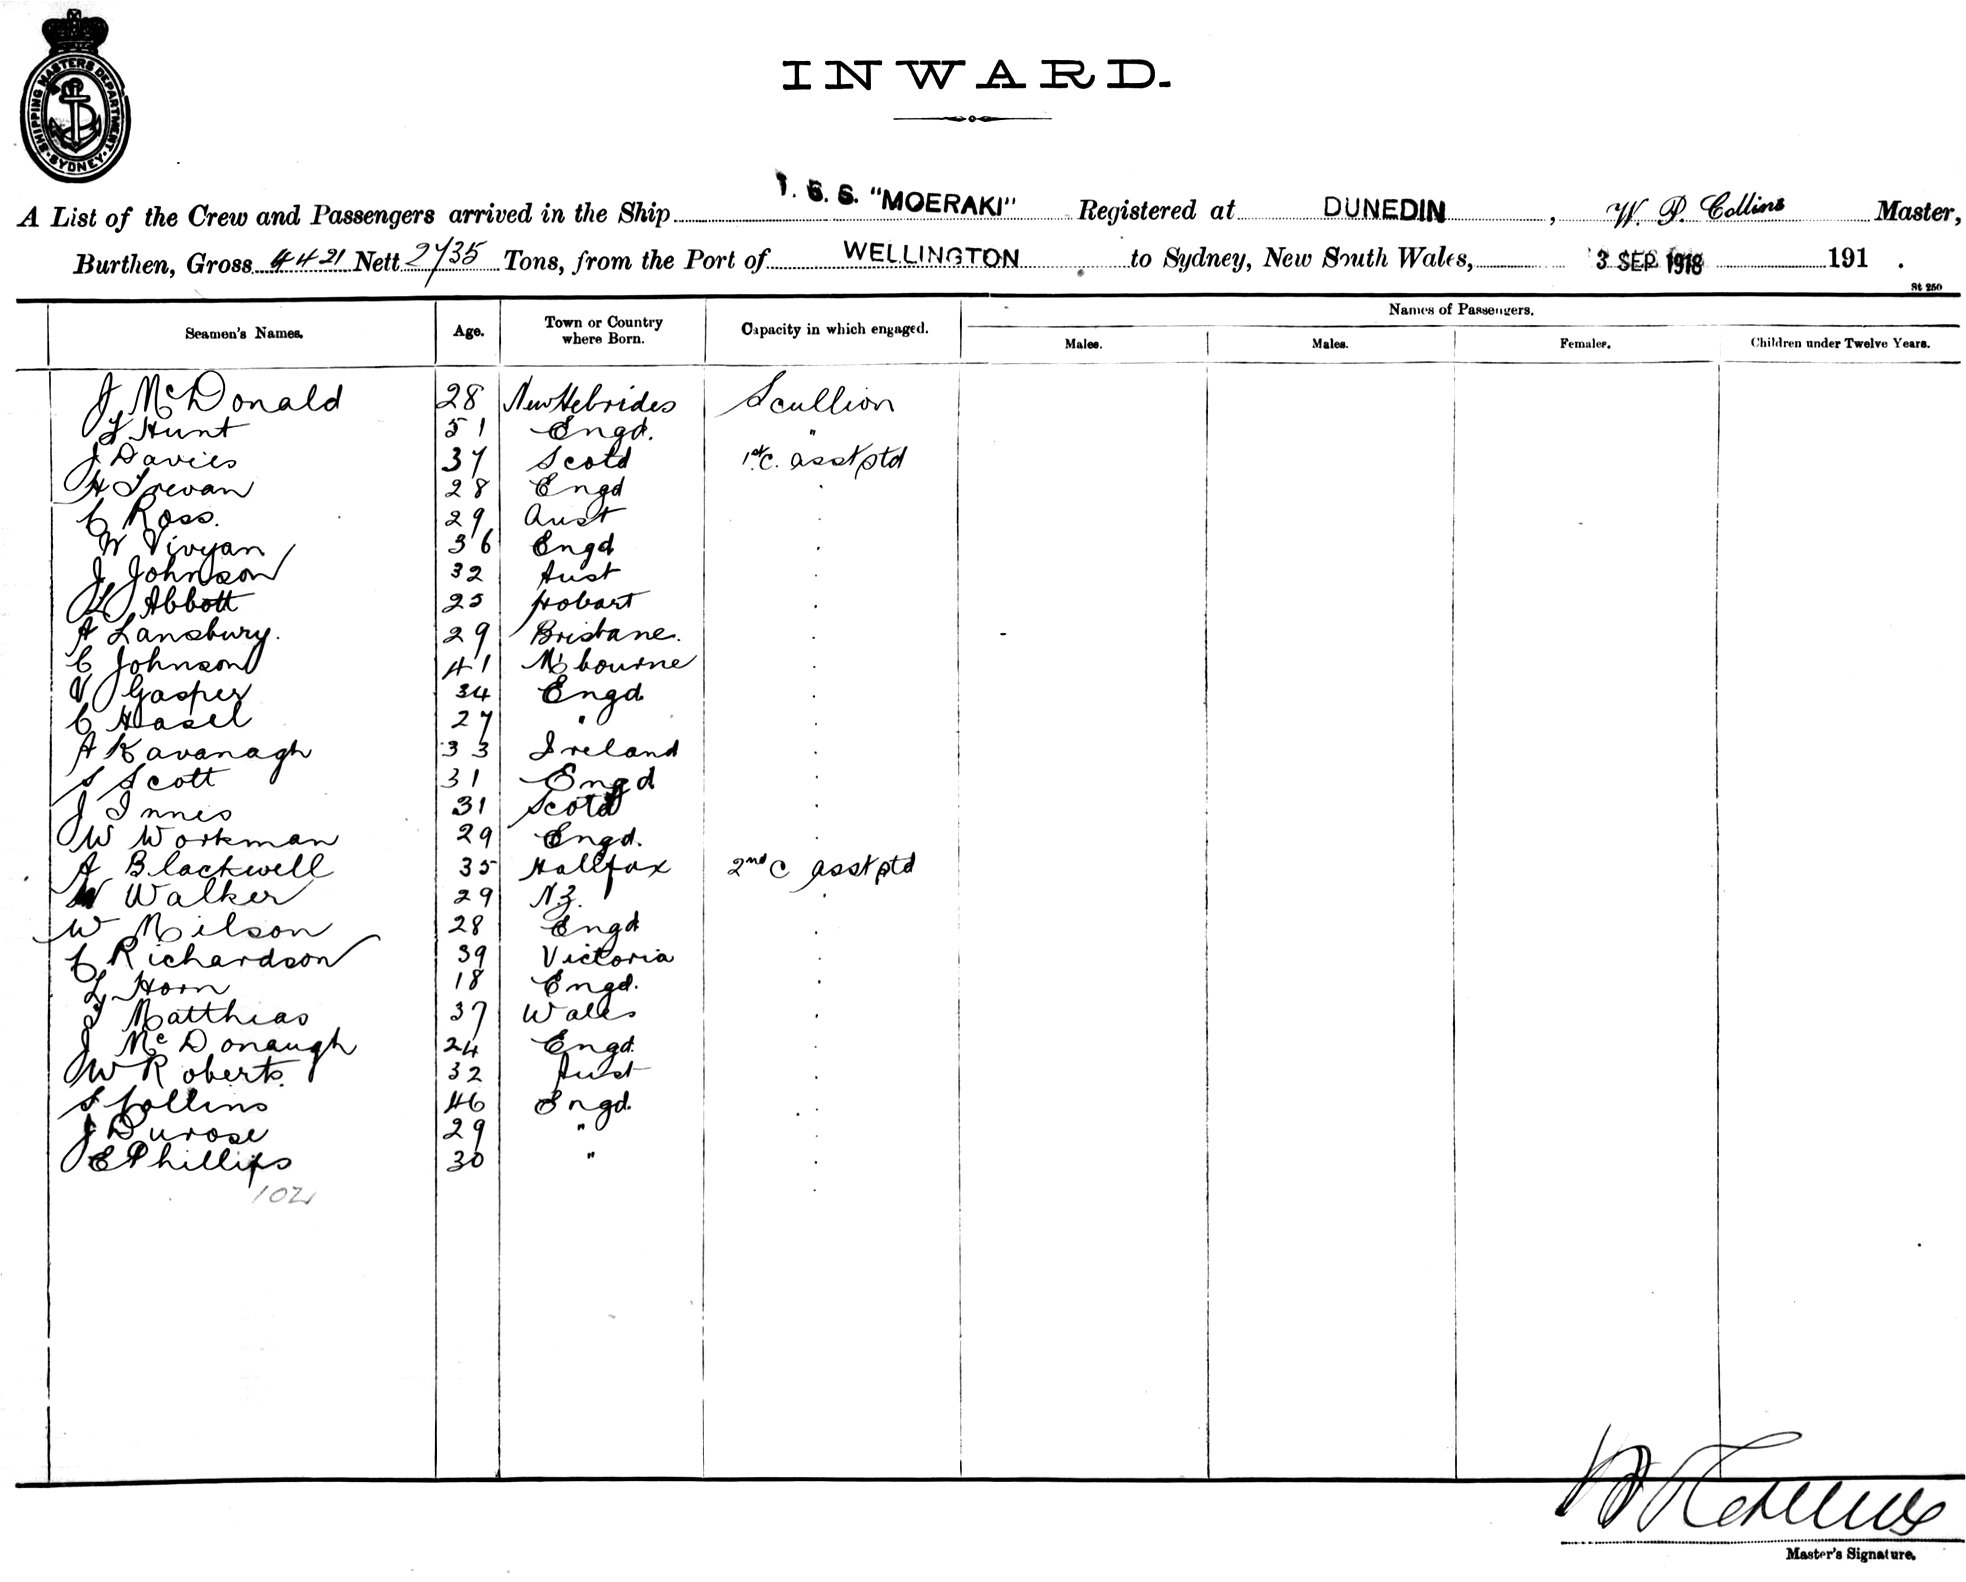 SHIPPING MASTERS DEPARTMENT. SYDNEY.
INWARD.
A List of the Crew and Passengers arrived in the Ship T. S. S. "MOERAKI" Registered at DUNEDIN, W. P. Collins Master,
Burthen, Gross 4421 Nett 2735 Tons, from the Port of WELLINGTON to Sydney, New South Wales, 3 SEP 1918 191 .
St 250
Seamen's Names. Age. Town or Country where Born. Capacity in which engaged. Names of Passengers.
Males. Males. Females. Children under Twelve Years.
J McDonald 28 New Hebrides Scullion
Hunt 51 Engd. "
J Davies 37 Scotd 1st C. asst ptd
H Trevan 28 Engd
C Ross. 29 Aust
W Vivyan 36 Engd
J Johnson 32 Aust
L Abbott 25 Hobart
A Lansbury. 29 Brisbane.
C Johnson 41 Mbourne
V Gasper 34 Engd
C Hasel 27 "
A Kavanagh 33 Ireland
S Scott 31 Engd
J Innes 31 Scotd
W Workman 29 Engd.
A Blackwell 35 Hallfax 2nd C asst ptd
W Walker 29 N.Z.
W Milson 28 Engd
C Richardson 39 Victoria
L Horn 18 Engd.
T Matthias 37 Wales
J McDonaugh 24 Engd.
W Roberts. 32 Aust
S Collins 46 Engd.
J Durose 29 "
E Phillips 30 "
102
W P Collins
Master's Signature.